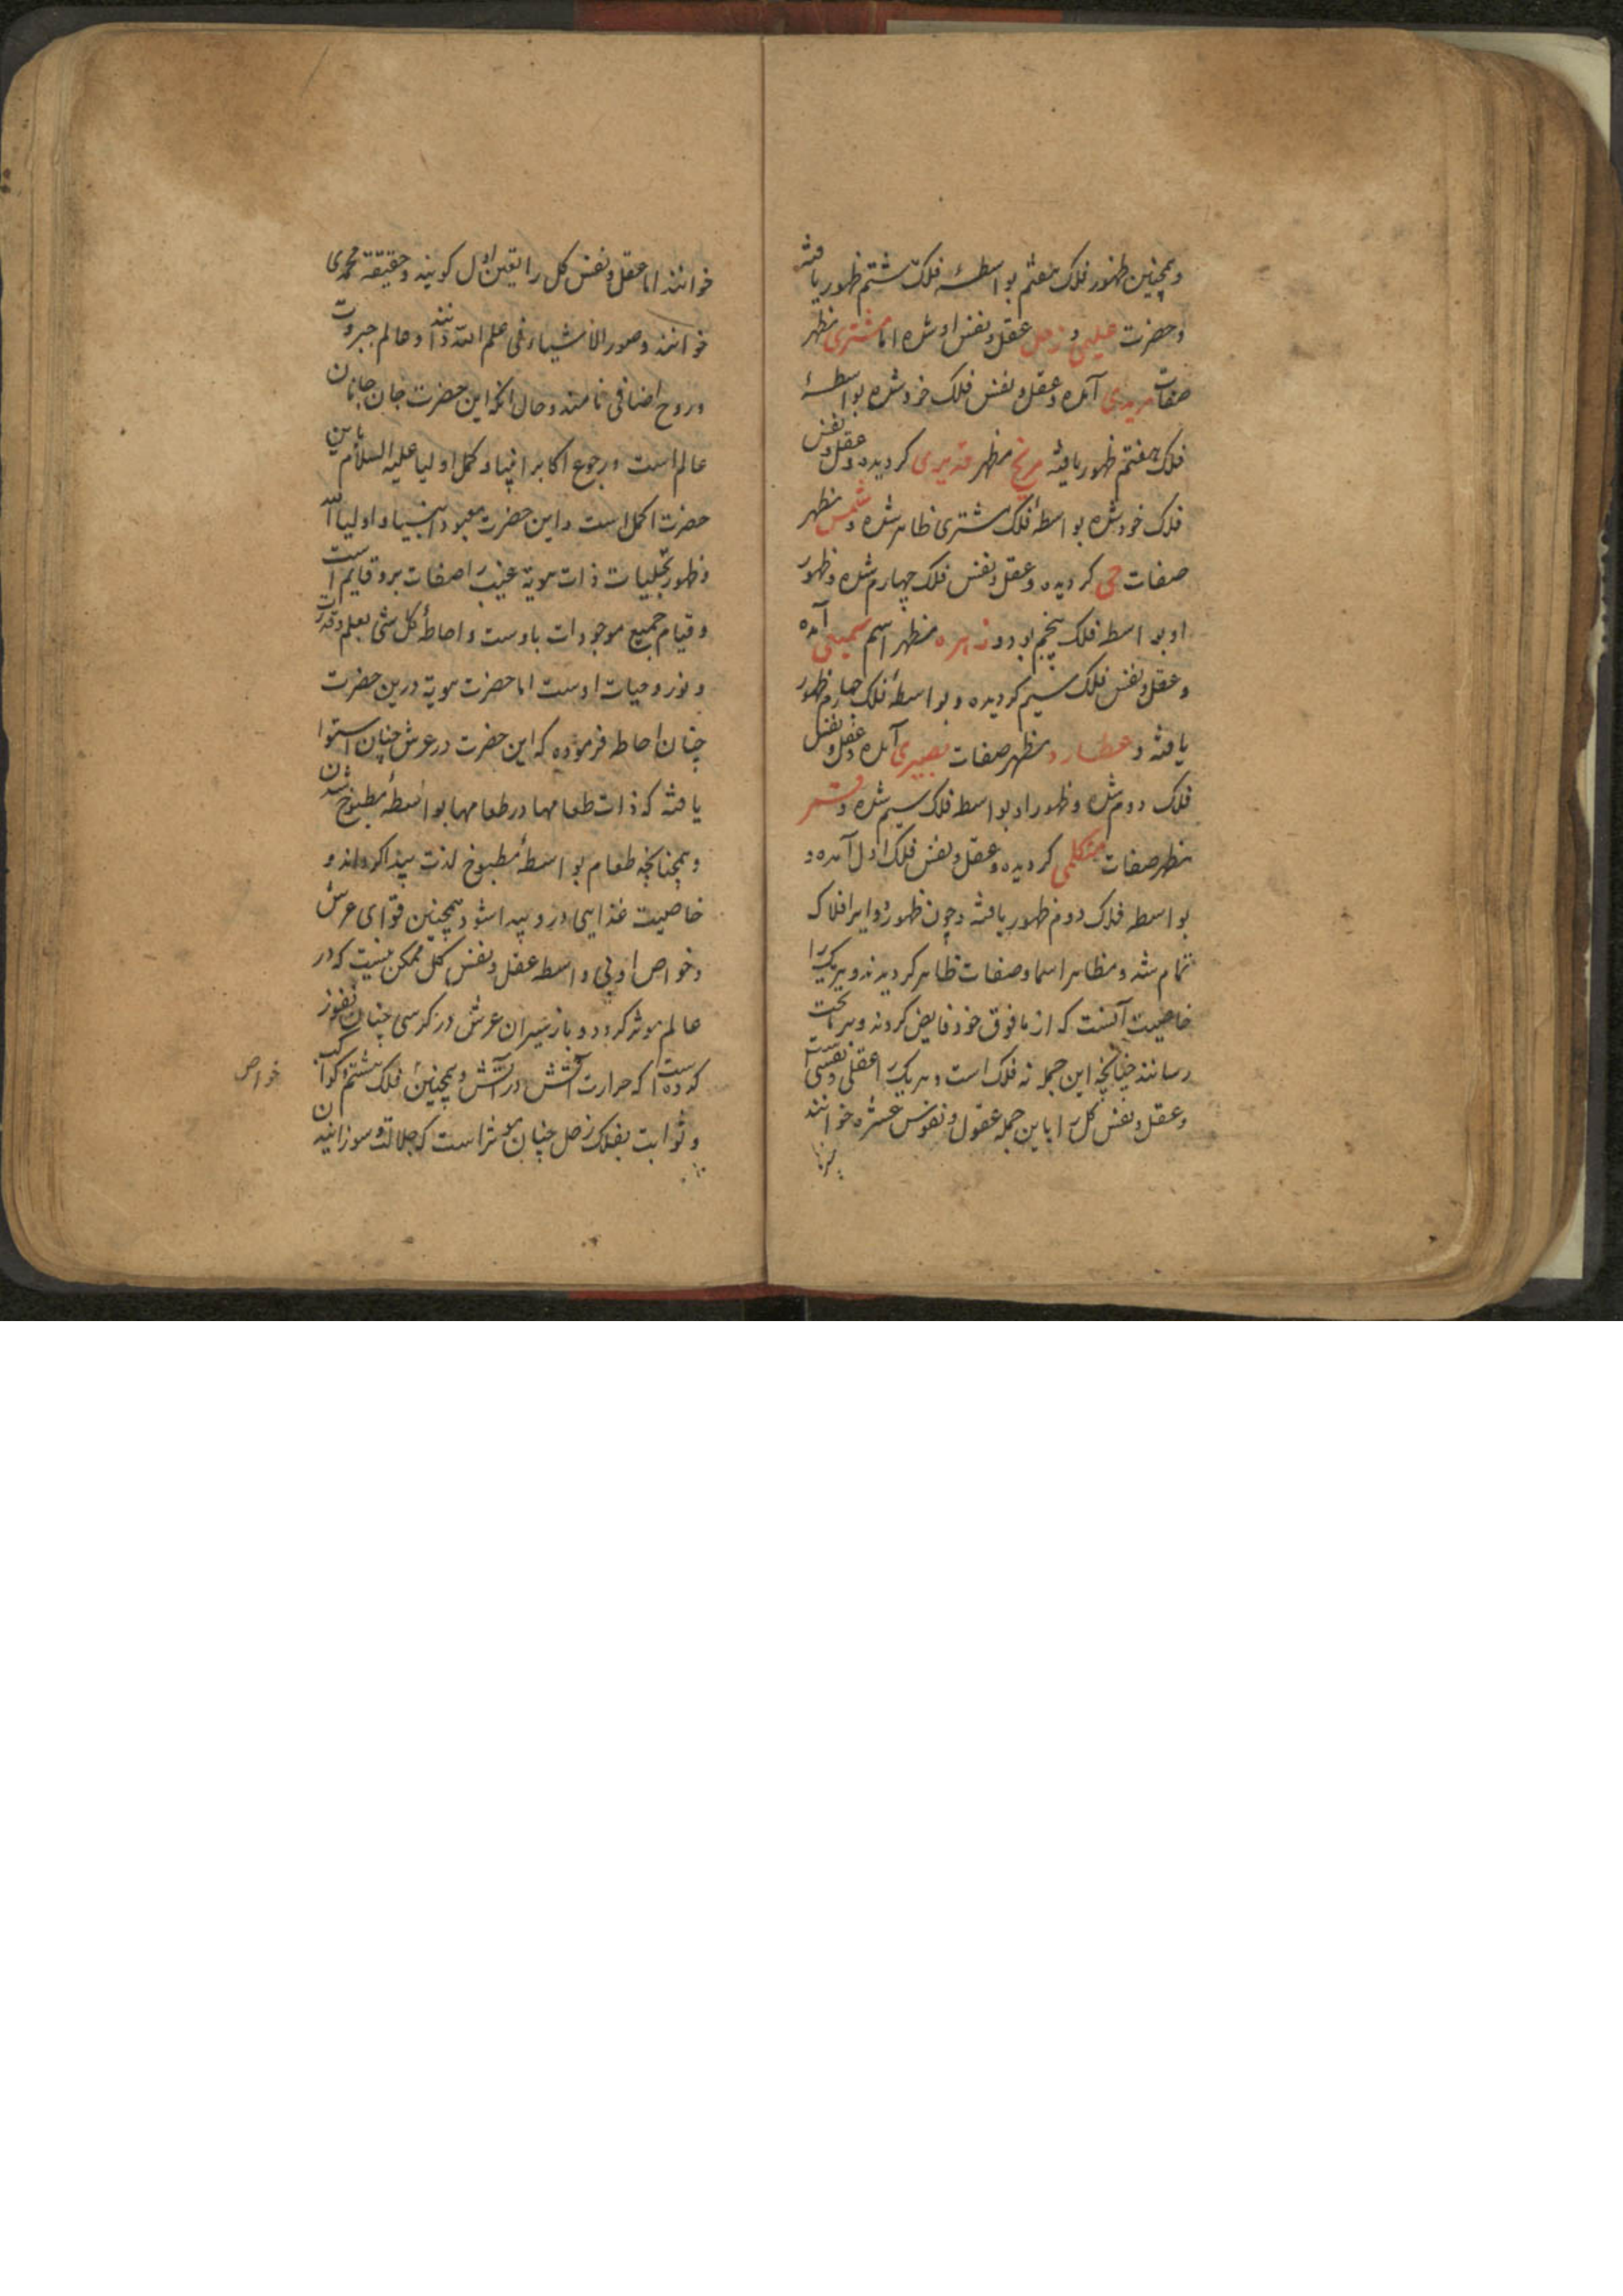 وهمچنین ظهور فلک هفتم بواسطهٔ فلک هشتم ظهور یافته
و حضرت علیمی و زحل عقل و نفس او شده اما مشتری مظهر
صفات مریدی آمده و عقل و نفس فلک خود شده بواسطهٔ
فلک هفتم ظهور یافته مریخ مظهر قدیری کردیده و عقل و نفس
فلک خود شده بواسطهٔ فلک مشتری ظاهر شده و شمس مظهر
صفات حی کردیده و عقل و نفس فلک چهارم شده و ظهور
او بواسطه فلک پنجم بود و زهره مظهر اسم سمیعی آمده
و عقل و نفس فلک سیم کردیده و بواسطهٔ فلک چهارم ظهور
یافته و عطارد مظهر صفات بصیری آمده و عقل و نفس
فلک دوم شده و ظهور او بواسطه فلک سیم شده و قمر
مظهر صفات متکلمی کردیده و عقل و نفس فلک اول آمده و
بواسطه فلک دوم ظهور یافته و چون ظهور دوایر افلاک
تمام شد و مظاهر اسما و صفات ظاهر کردیدند و هریک را
خاصیت آنست که از مافوق خود فایض کردند و بر ماتحت
رسانند چنانچه این جمله نه فلک است و هریک را عقلی و نفسی است
و عقل و نفس کل را باین جمله عقول و نفوس عشره خوانند
خوانند اما عقل و نفس کل را تعین اول کویند و حقیقة محمدی
خوانند و صور الاشیاء فی علم الله دانند و عالم جبروت
و روح اضافی نامند و حال آنکه این حضرت جان جانان
عالم است و رجوع اکابر انبیا و کمل اولیا علیه السلام باین
حضرت اکمل است و این حضرت معبود انبیا و اولیا الله
و ظهور تجلیات ذات هویة غیب را صفات برو قایم است
و قیام جمیع موجودات باوست و احاطهٔ کل شئ بعلم و قدرت
و نور و حیات اوست اما حضرت هویة درین حضرت
چنان احاطه فرموده که این حضرت در عرش چنان استوا
یافته که ذات طعامها در طعامها بواسطهٔ مطبوخ شدن
و همچنانچه طعام بواسطهٔ مطبوخ لذت پیدا کرداند و
خاصیت غذایی درو پیدا شود همچنین قوای عرش
و خواص او بی واسطه عقل و نفس کل ممکن نیست که در
عالم موثر کردد و باز سیران عرش در کرسی چنان نفوذ
کرده است که حرارت آتش در آتش و همچنین فلک هشتم و کواکب
خواص
و ثوابت بفلک زحل چنان موثر است که جلالت و سوزانیدن